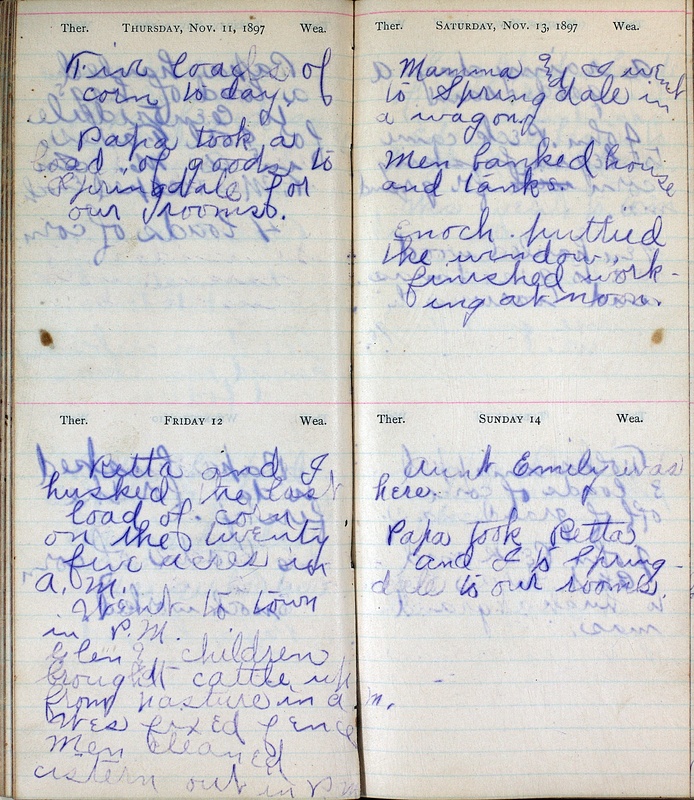 Ther. THURSDAY, NOV. 11, 1897 Wea.
Five loads of
corn to day.
Papa took a
load of goods to
Springdale for
our rooms.
Ther. FRIDAY 12 Wea.
Retta and I
husked the last
load of corn
on the twenty
five acres in
a.m.
Went to town
in P.M.
Glen & children
brought cattle up
from pasture in a.m.
Wes fixed fence
Men cleaned
cistern out in P.M
Ther. SATURDAY, NOV. 13, 1897 Wea.
Mamma and I went
to Springdale in
a wagon.
Men banked house
and tanks.
Enoch puttied
the window
finished work-
ing at noon.
Ther. SUNDAY 14 Wea.
Aunt Emily was
here.
Papa took Retta
and I to Spring-
dale to our rooms.